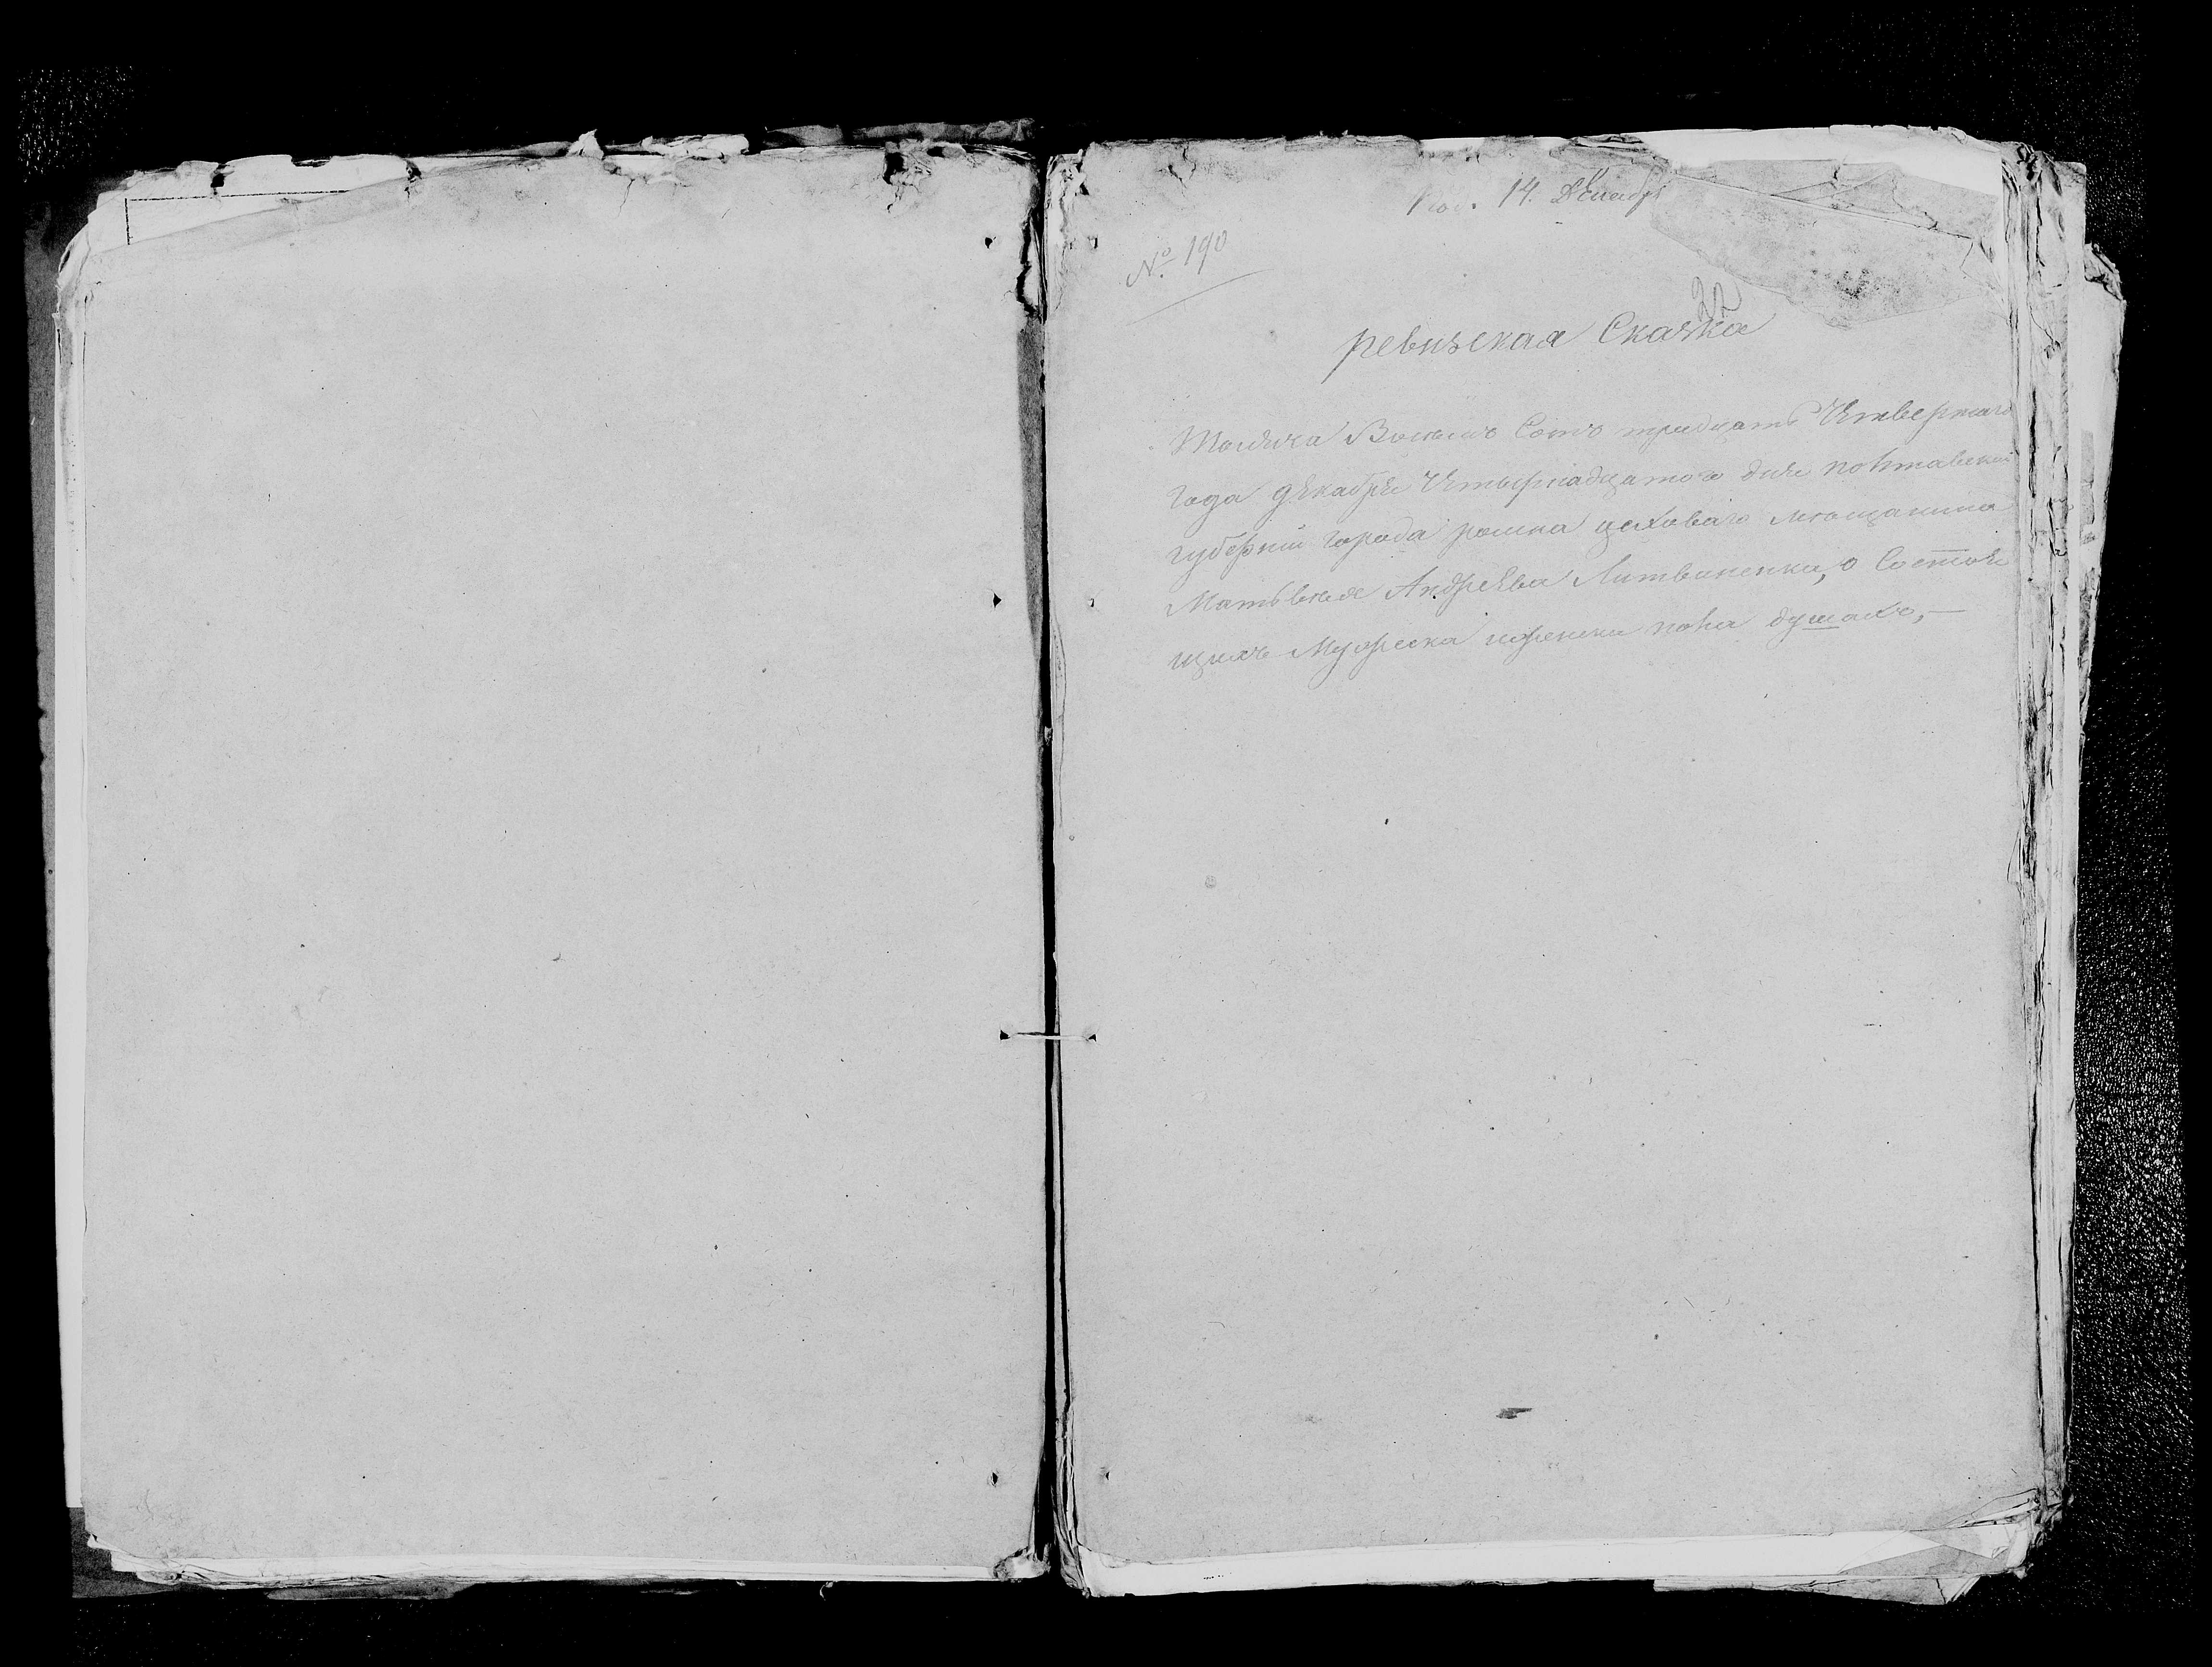 Под. 14. Декабр
№ 190
32
ревизская Сказка
Тысяча Восемь Сотъ тридцать Четвертаго
года декабря Четырнадцатого дня полтавской
губернии города ромна цеховаго мещанина
Матвея Андреева Литвиненка, о Состоя
щихъ Мужеска иженска пола душахъ,—